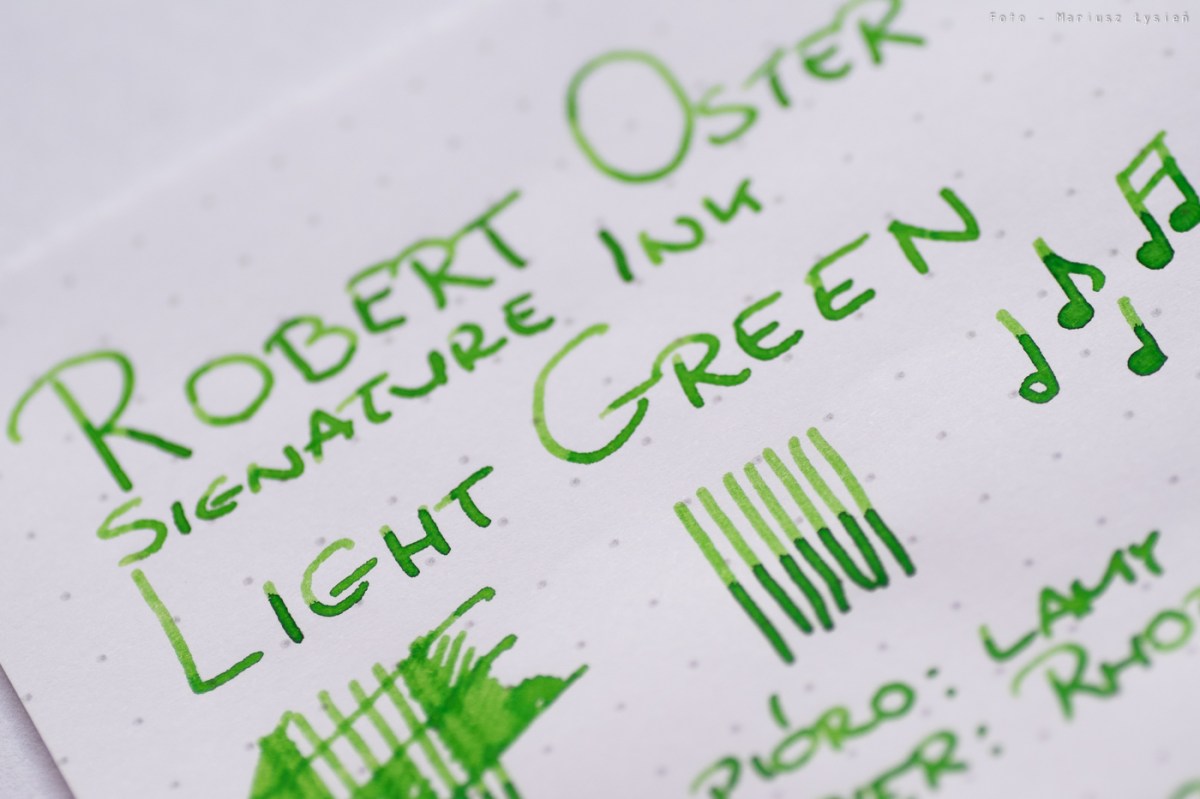 Foto - Mariusz Łysień
ROBERT OSTER
SIGNATURE INK
LIGHT GREEN
PIÓRO: LAMY